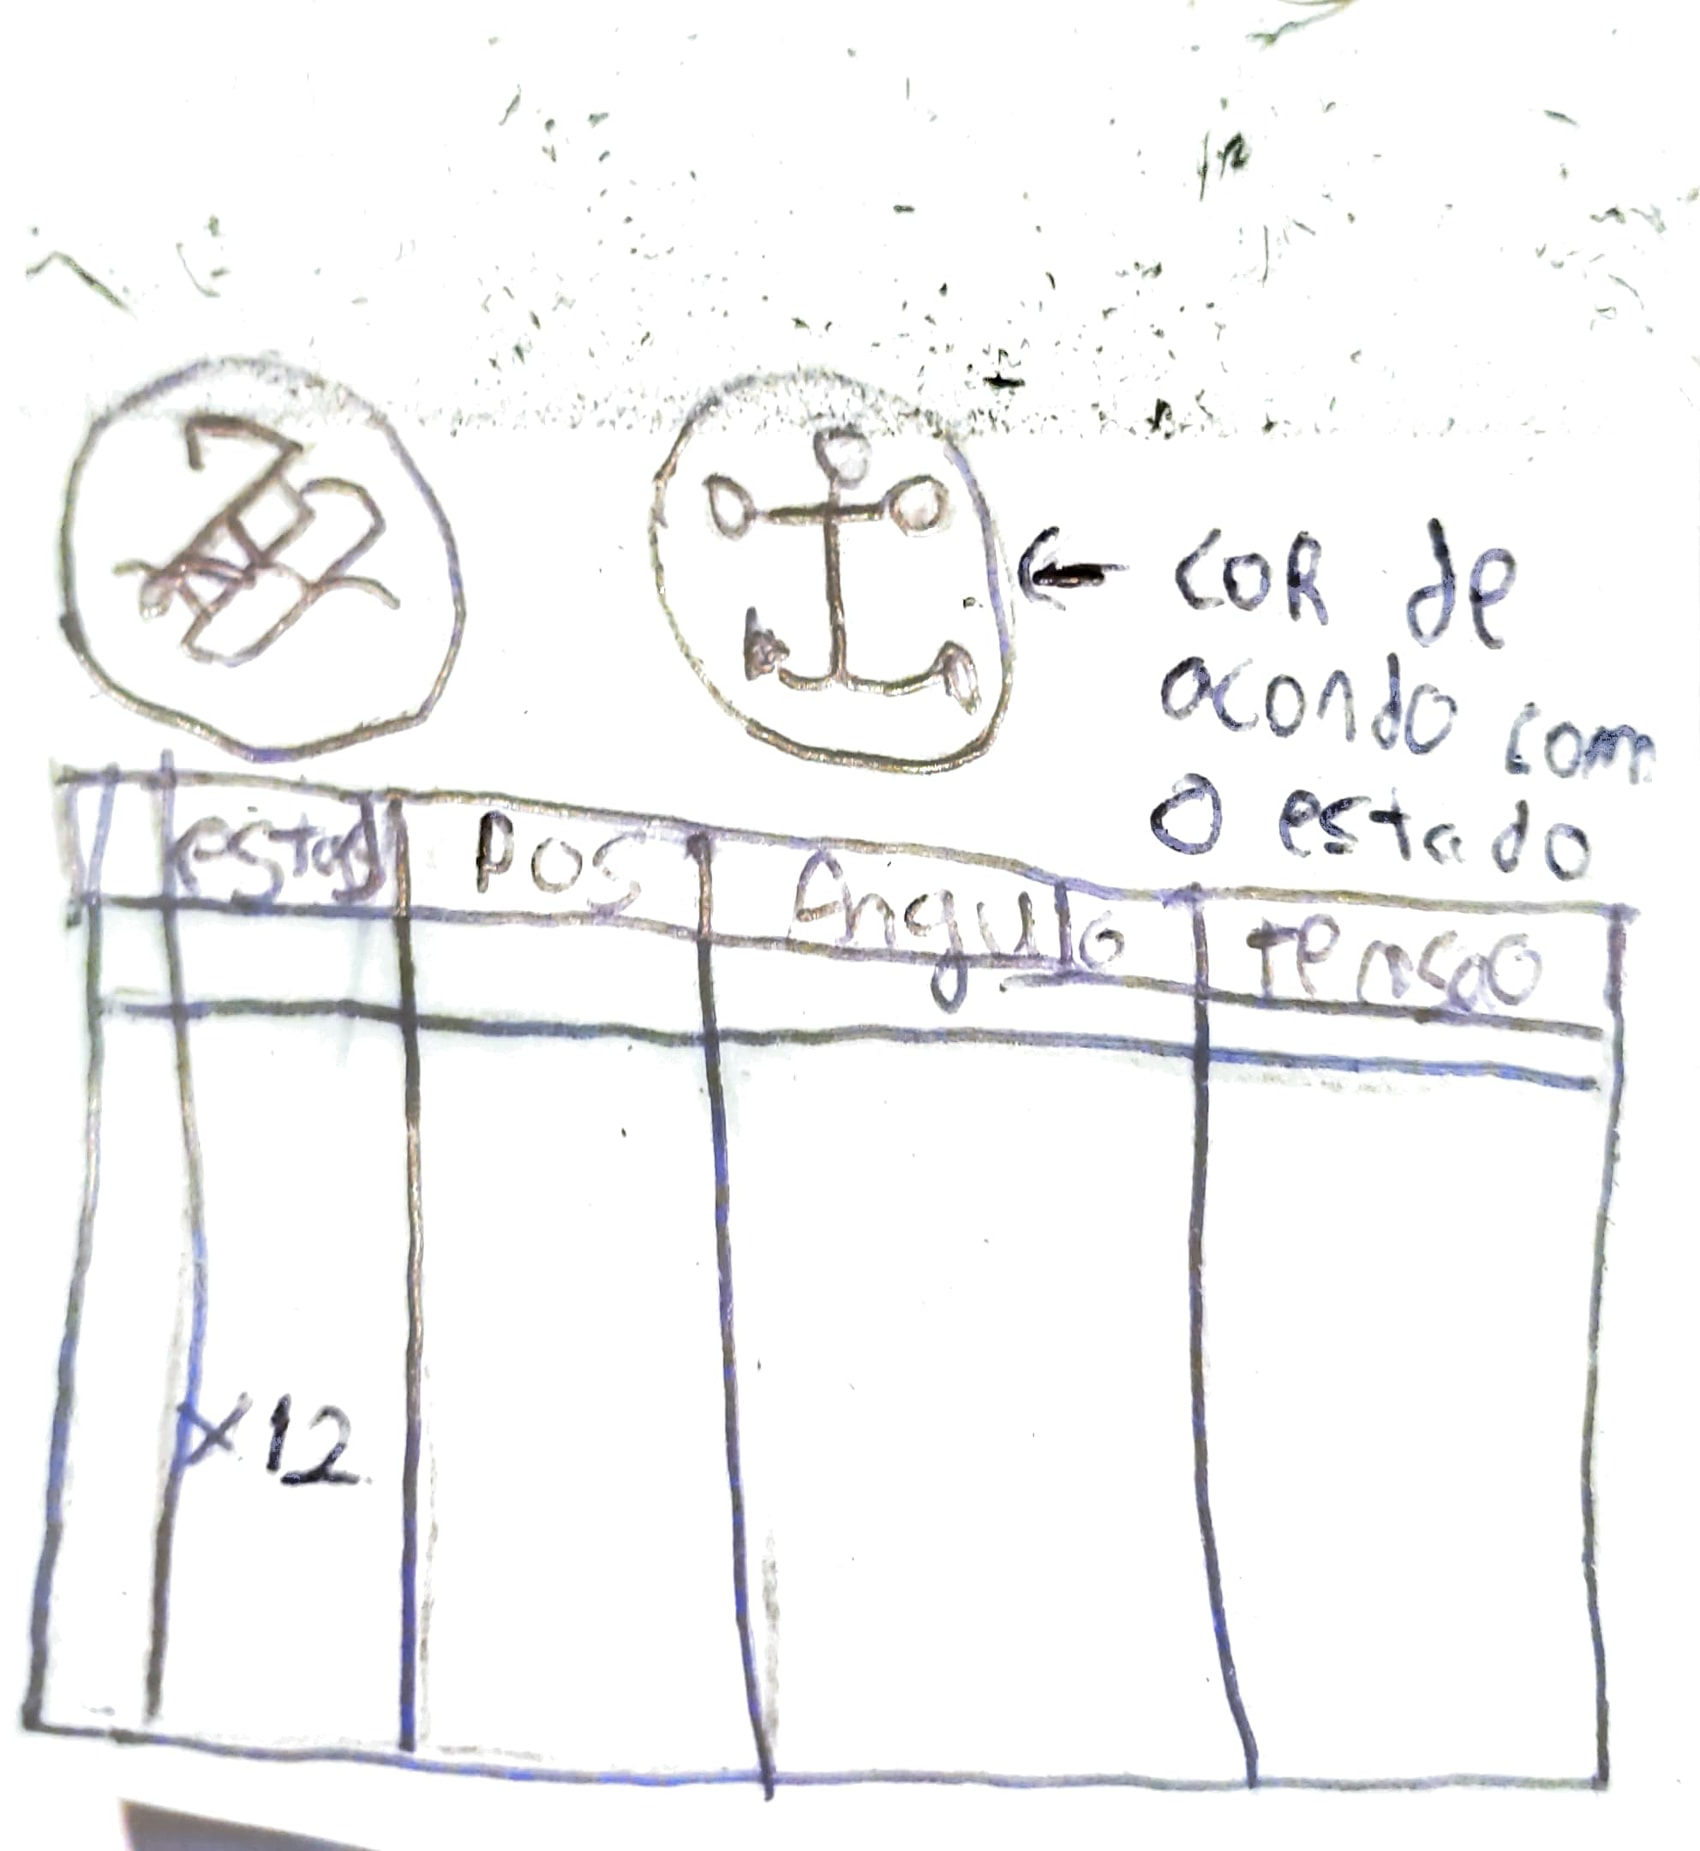 COR de
acordo com
o estado
estado Pos Angulo tensao
x12